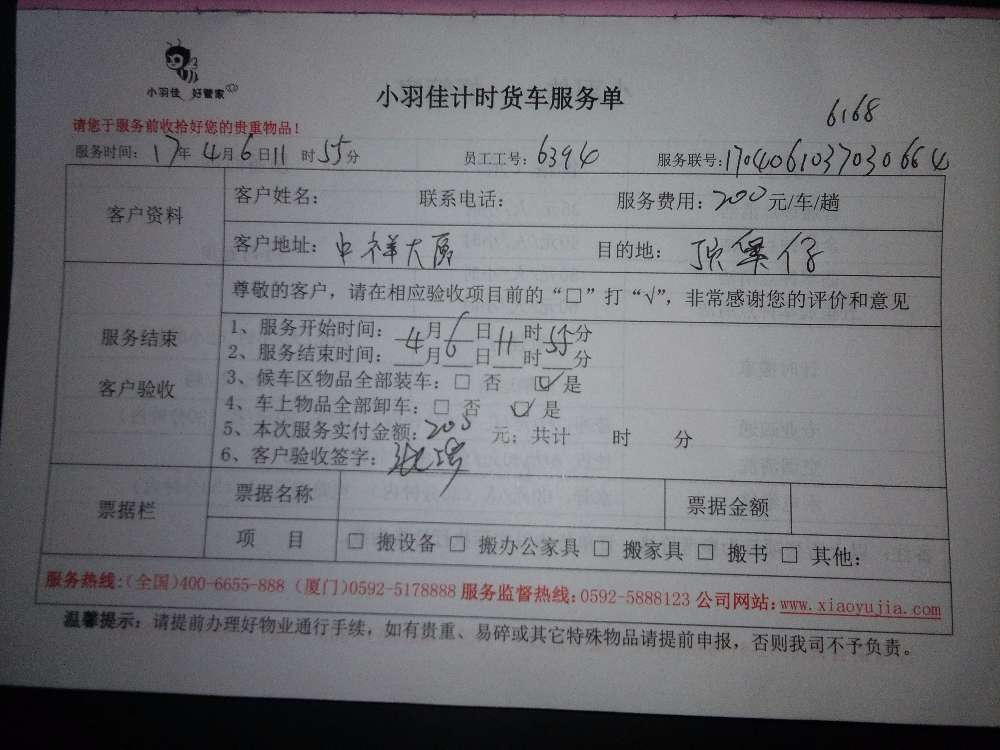 小羽佳 好管家
小羽佳计时货车服务单
6168
请您于服务前收拾好您的贵重物品！
服务时间：17年4月6日11时55分 员工工号：6394 服务联号：17040610370306664
客户资料
客户姓名： 联系电话： 服务费用：200元/车/趟
客户地址：中祥大厦 目的地：顶粜仔
服务结束
客户验收
尊敬的客户，请在相应验收项目前的“□”打“√”，非常感谢您的评价和意见
1、服务开始时间：4月6日11时 分
2、服务结束时间：__月__日__时55分
3、候车区物品全部装车：□ 否 ☑ 是
4、车上物品全部卸车：□ 否 ☑ 是
5、本次服务实付金额：200元；共计 时 分
6、客户验收签字：
票据栏
票据名称 票据金额
项 目 □ 搬设备 □ 搬办公家具 □ 搬家具 □ 搬书 □ 其他：
服务热线：(全国)400-6655-888 (厦门)0592-5178888 服务监督热线：0592-5888123 公司网站：www.xiaoyujia.com
温馨提示：请提前办理好物业通行手续，如有贵重、易碎或其它特殊物品请提前申报，否则我司不予负责。